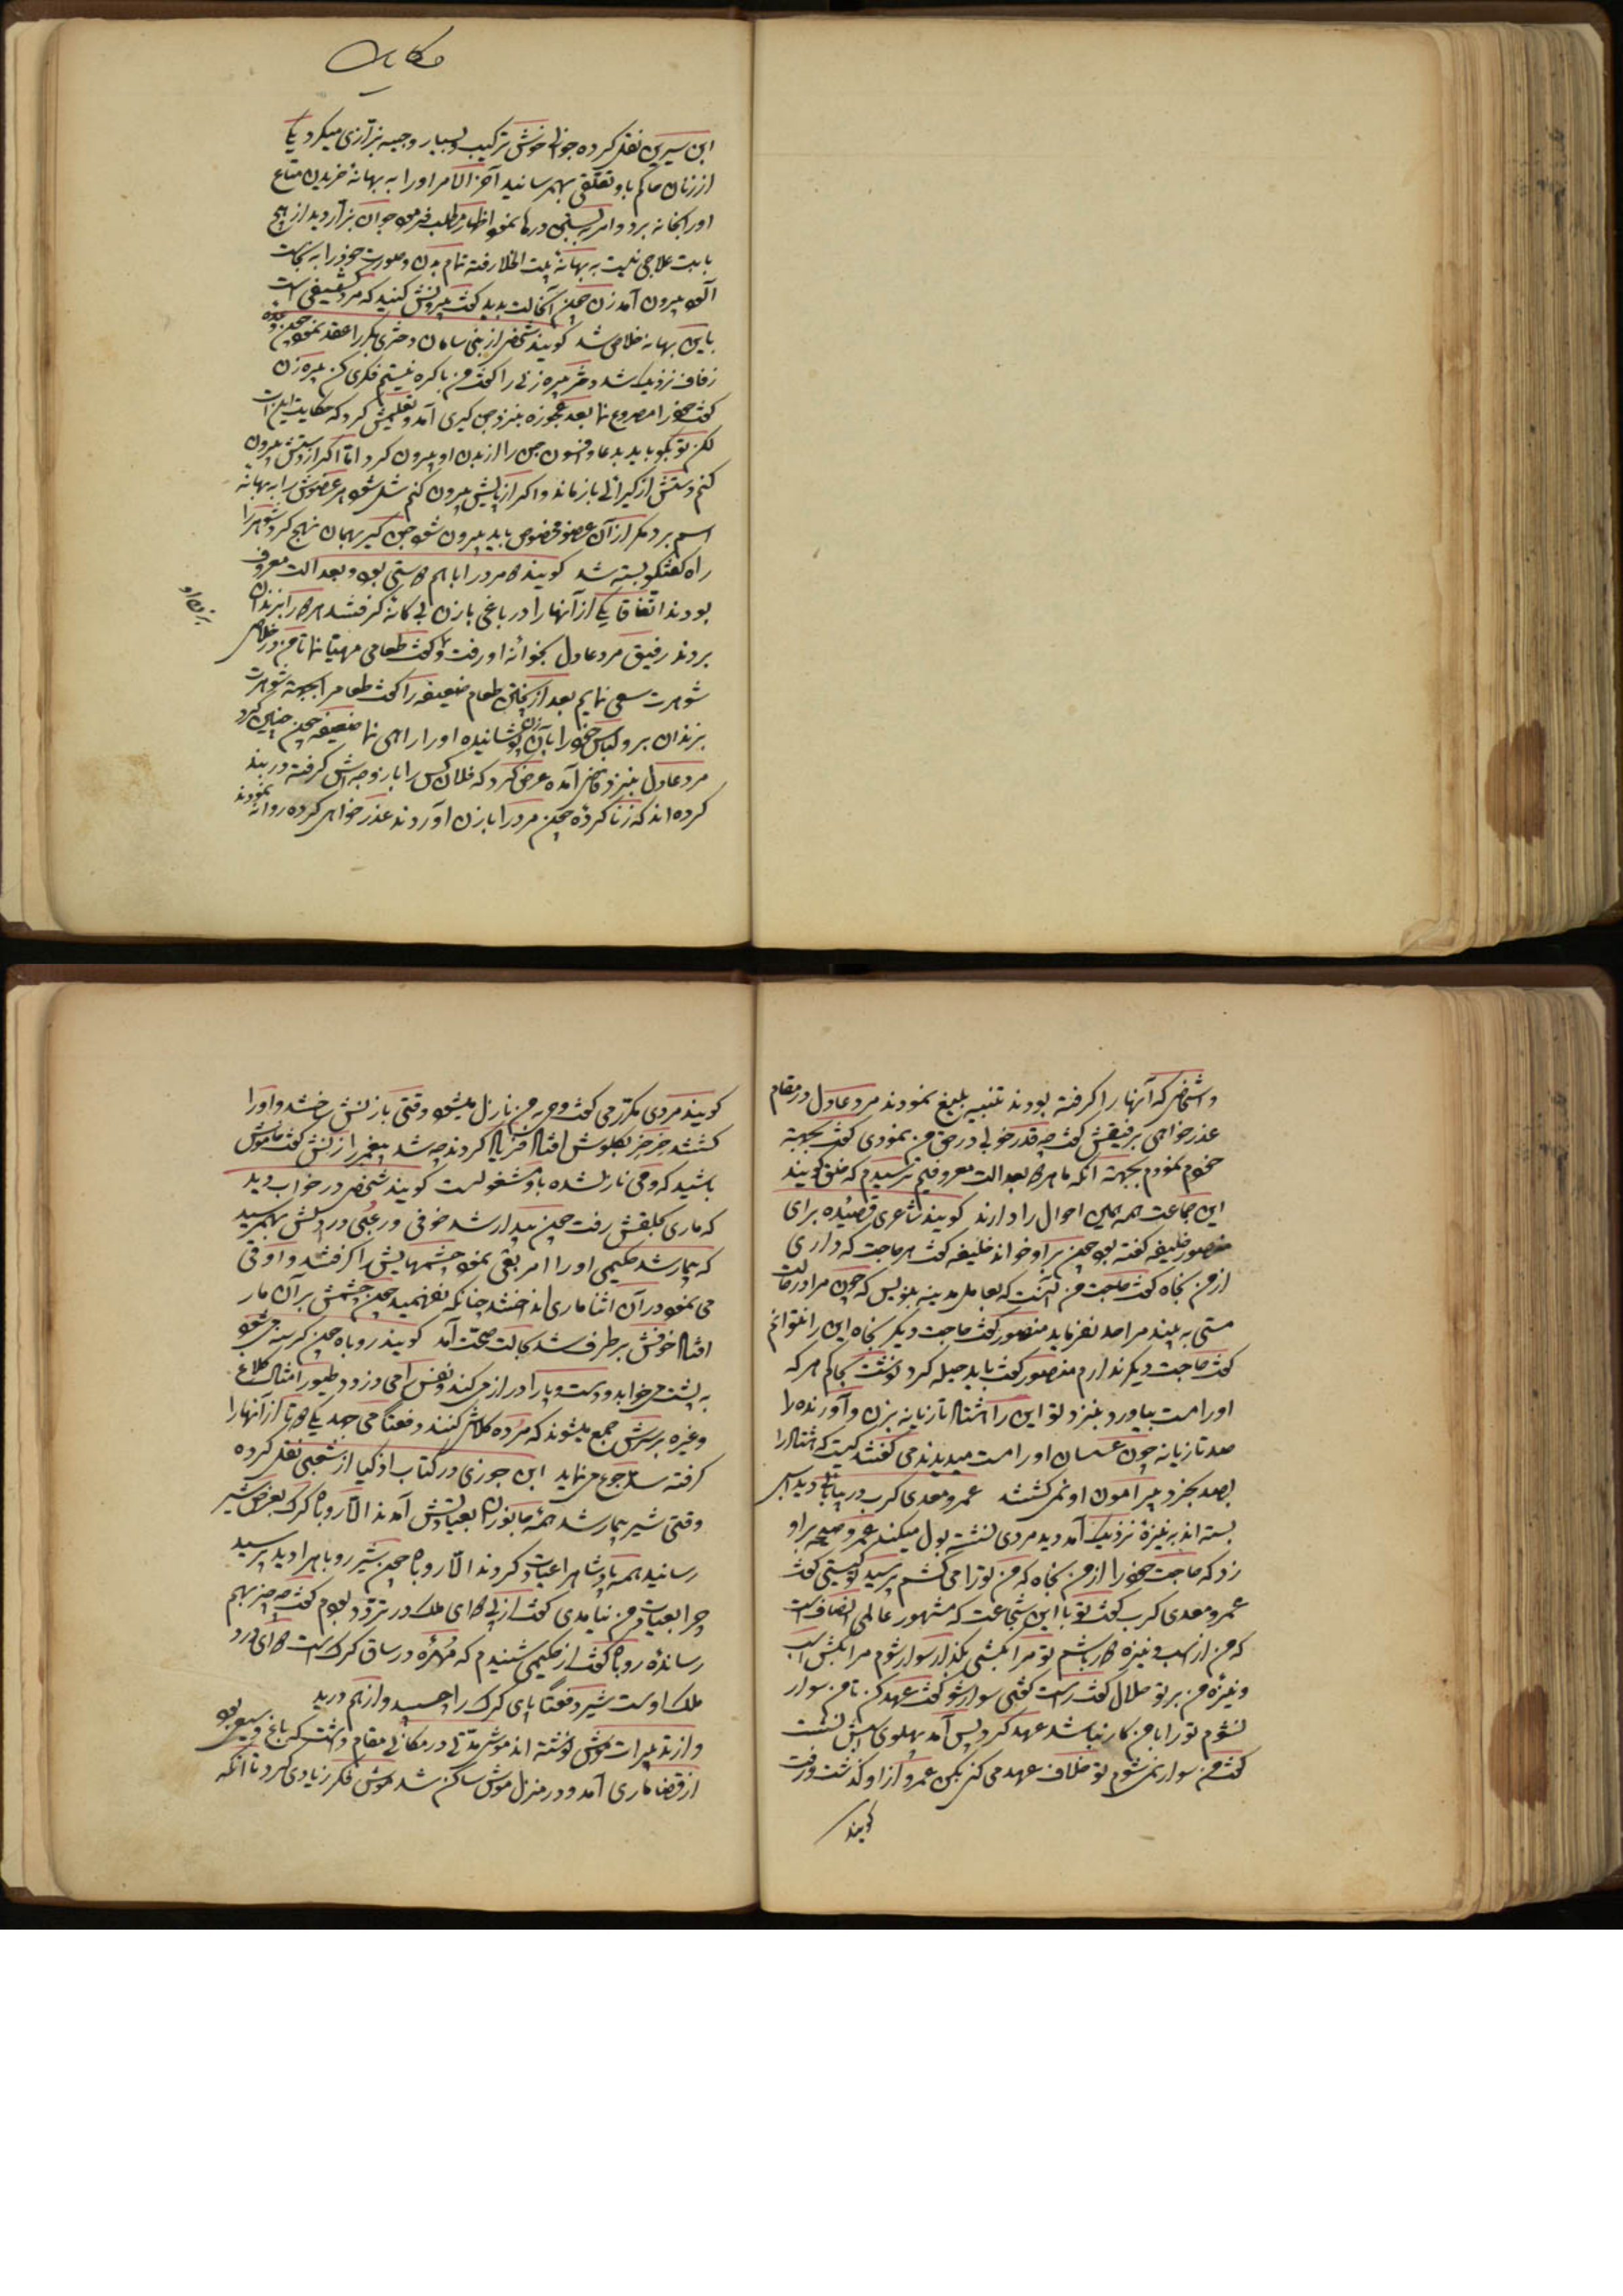 حکایات
ابن سیرین نقل کرده جوانی خوش ترکیب و بسیار وجیه بزازی میکرد یکی
از زنان حاکم باو تعلقی بهمرسانید آخر الامر او را به بهانه خریدن متاع
او را بخانه برد و امر به بستن درها نمود اظهار مطلب فرمود جوان بزاز دید از هیچ
بابت علاجی نیست به بهانهٔ بیت الخلا رفته تمام بدن و صورت خود را به نجاست
آلود بیرون آمد زن چون آنحالت بدید گفت بیرونش کنید که مرد کثیفی است
باین بهانه خلاص شد گویند شخصی از بنی سامان دختری بکر را عقد نمود چون وعده
زفاف نزدیک شد دختر پیره زنی را گفت من باکره نیستم فکری کن پیره زن
گفت خود را مصروع نما بعد عجوزه بنزد جن گیری آمد و تعلیمش کرد که حکایت این است
لکن تو بگو باید بدعا و افسون جن را از بدن او بیرون کرد اما اگر از دستش بیرون
کنم دستش از گیرائی باز ماند و اگر از پایش بیرون کنم شل شود هر عضوش را به بهانه
اسم برد مگر از آن عضو مخصوص باید بیرون شود جن گیر بهمان نهج کرد شوهر را
راه گفتگو بسته شد گویند دو مرد را با هم دوستی بود و بعدالت معروف
بودند اتفاقا یکی از آنها را در باغی با زن بی گانه گرفتند هر دو را بزندان
بردند رفیق مرد عادل بخوانهٔ او رفت و گفت طعامی مهیا نما تا من در خلاصی
شوهرت سعی نمایم بعد از پختن طعام ضعیفه را گفت طعام را بجهة شوهرت
بزندان بر و لباس خود را بآن زن پوشانیده او را راهی نما ضعیفه چون چنین کرد
مرد عادل بنزد قاضی آمده عرض کرد که فلان کس را با زوجه اش گرفته در بند
کرده اند که زنا کردهٔ چون مرد را با زن آوردند عذر خواهی کرده روانه نمودند
و اشخاصی که آنها را گرفته بودند تنبیه بلیغ نمودند مرد عادل در مقام
عذر خواهی برفیقش گفت چه قدر خوبی در حق من نمودی گفت بجهة
خودم نمودم بجهة آنکه ما هر دو بعدالت معروفیم ترسیدم که خلق گویند
این جماعت همه همین احوال را دارند گویند شاعری قصیده برای
منصور خلیفه گفته بود چون بر او خواند خلیفه گفت هر حاجت که داری
از من بخواه گفت حاجت من آنست که بعامل مدینه بنویس که چون مرا در حالت
مستی به بیند مرا حد نفرماید منصور گفت حاجت دیگر بخواه این را نتوانم
گفت حاجت دیگر ندارم منصور گفت باید حیله کرد نوشت بحاکم هر که
او را مست بیاورد بنزد تو این را هشتاد تازیانه بزن و آورنده را
صد تازیانه چون عسسان او را مست میدیدند می گفتند کیست که هشتاد را
بصد بخرد پیرامون او نمی گشتند عمرو معدی کرب در بیابانی دید اسبی
بسته اند به نیزهٔ نزدیک آمد دید مردی نشسته بول میکند عمرو صیحه بر او
زد که حاجت خود را از من بخواه که من تو را می کشم پرسید تو کیستی گفت
عمرو معدی کرب گفت تو با این شجاعت که مشهور عالمی انصاف است
که من از اسب و نیزه دور باشم تو مرا بکشی بگذار سوار شوم مرا بکش اسب
و نیزهٔ من بر تو حلال گفت راست گفتی سوار شو گفت عهد کن تا من سوار
نشوم تو را با من کار نباشد عهد کرد پس آمد پهلوی اسبش نشست
گفت من سوار نمی شوم تو خلاف عهد می کنی بکن عمرو از او گذشت و رفت
گویند
گویند مردی مکرر می گفت وحی بمن نازل میشود وقتی با زنش خفته و او را
باشید که وحی نازل شده باو مشغول است گویند شخصی در خواب دید
که ماری بحلقش رفت چون بیدار شد خوفی و رعبی در دلش بهمرسید
که بیمار شد حکیمی او را امر بقی نمود چشمهایش را گرفتند و او قی
می نمود در آن اثنا ماری انداختند چنانکه نفهمید چون چشمش بر آن مار
افتاد خوفش برطرف شد بحالت صحت آمد گویند روباه چون گرسنه می شود
به پشت می خوابد و دست و پا را دراز می کند و نفس را می دزدد طیور امثال کلاغ
و غیره بر سرش جمع میشوند که مرده کلاش کنند دفعتا می جهد یکی دو تا از آنها را
گرفته سد جوع می نماید ابن جوزی در کتاب اذکیا از شعبی نقل کرده
وقتی شیر بیمار شد همهٔ جانوران بعیادتش آمدند الا روباه گرگ بعرض شیر
رسانید همه پادشاه را عیادت کردند الا روباه چون شیر روباه را دید پرسید
چرا بعیادت من نیامدی گفت از پی دوای ملک در تردد بودم گفت چه چیز بهم
رساندهٔ روباه گفت از حکیمی شنیدم که مهرهٔ در ساق گرگ است دوای درد
ملک اوست شیر دفعتا پای گرگ را چسبید و از هم درید
و از تدبیرات موش نوشته اند موش مدتی در مکانی مقام داشت که باغ وسیعی بود
از قضا ماری آمد و در منزل موش ساکن شد موش فکر زیادی کرد تا آنکه